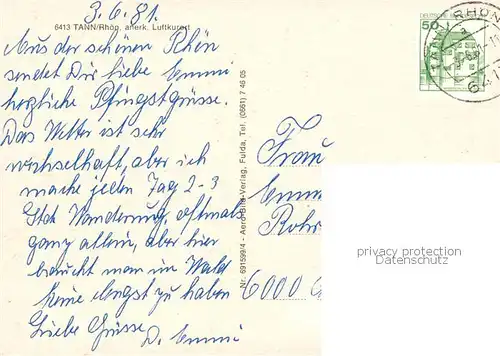 3.6.81.
6413 TANN/Rhön, anerk. Luftkurort
Aus der schönen Rhön
sendet Dir liebe Emmi
herzliche Pfingstgrüsse.
Das Wetter ist sehr
wechselhaft, aber ich
mache jeden Tag 2-3
Std Wanderung, oftmals
ganz allein, aber hier
braucht man im Wald
keine Angst zu haben
Liebe Grüsse
D. Emmi
Nr. 691599/4 - Aero-Bild-Verlag, Fulda, Tel. (0661) 7 46 05
50
RHÖN
Frau
Emma
Rohr
6000
privacy protection
Datenschutz